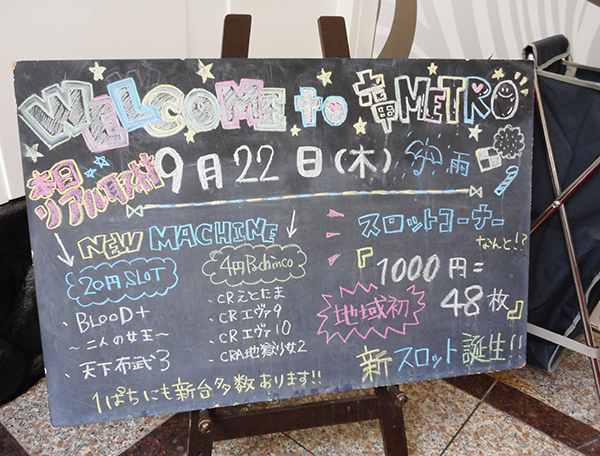 WELCOME to 竜METRO
本日
リアル取材
9月22日(木) 雨
NEW MACHINE
20円SLOT
・BLOOD+
〜二人の女王〜
・天下布武3
4円Pachinco
・CRえとたま
・CRエヴァ9
・CRエヴァ10
・CRA地獄少女2
1ぱちにも新台多数あります!!
スロットコーナー
なんと!?
『1000円=
48枚』
地域初
新スロット誕生!!